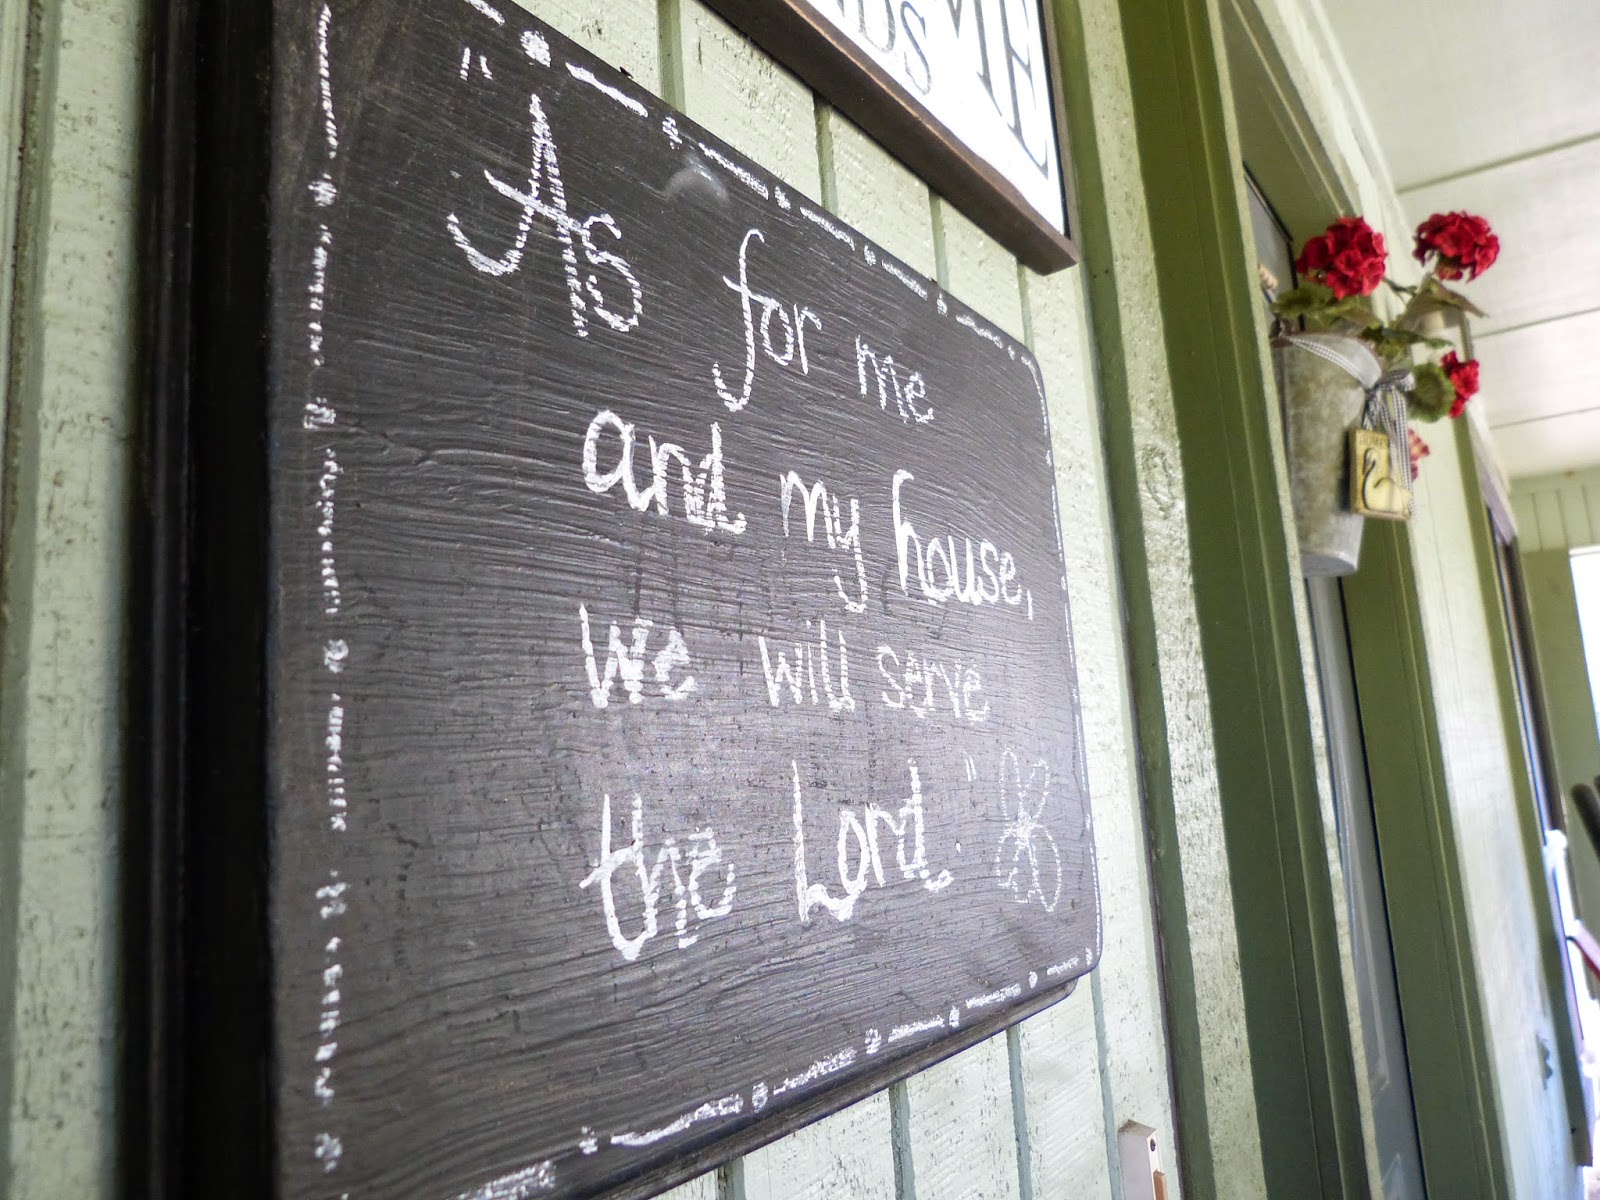 "As for me
and my house,
we will serve
the Lord."